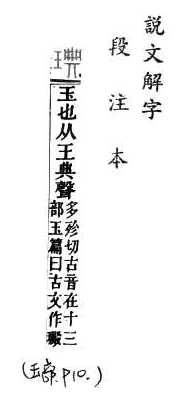 說文解字
段注本
琠
玉也从王典聲
多殄切古音在十三
部玉篇曰古文作
(玉部.P10.)